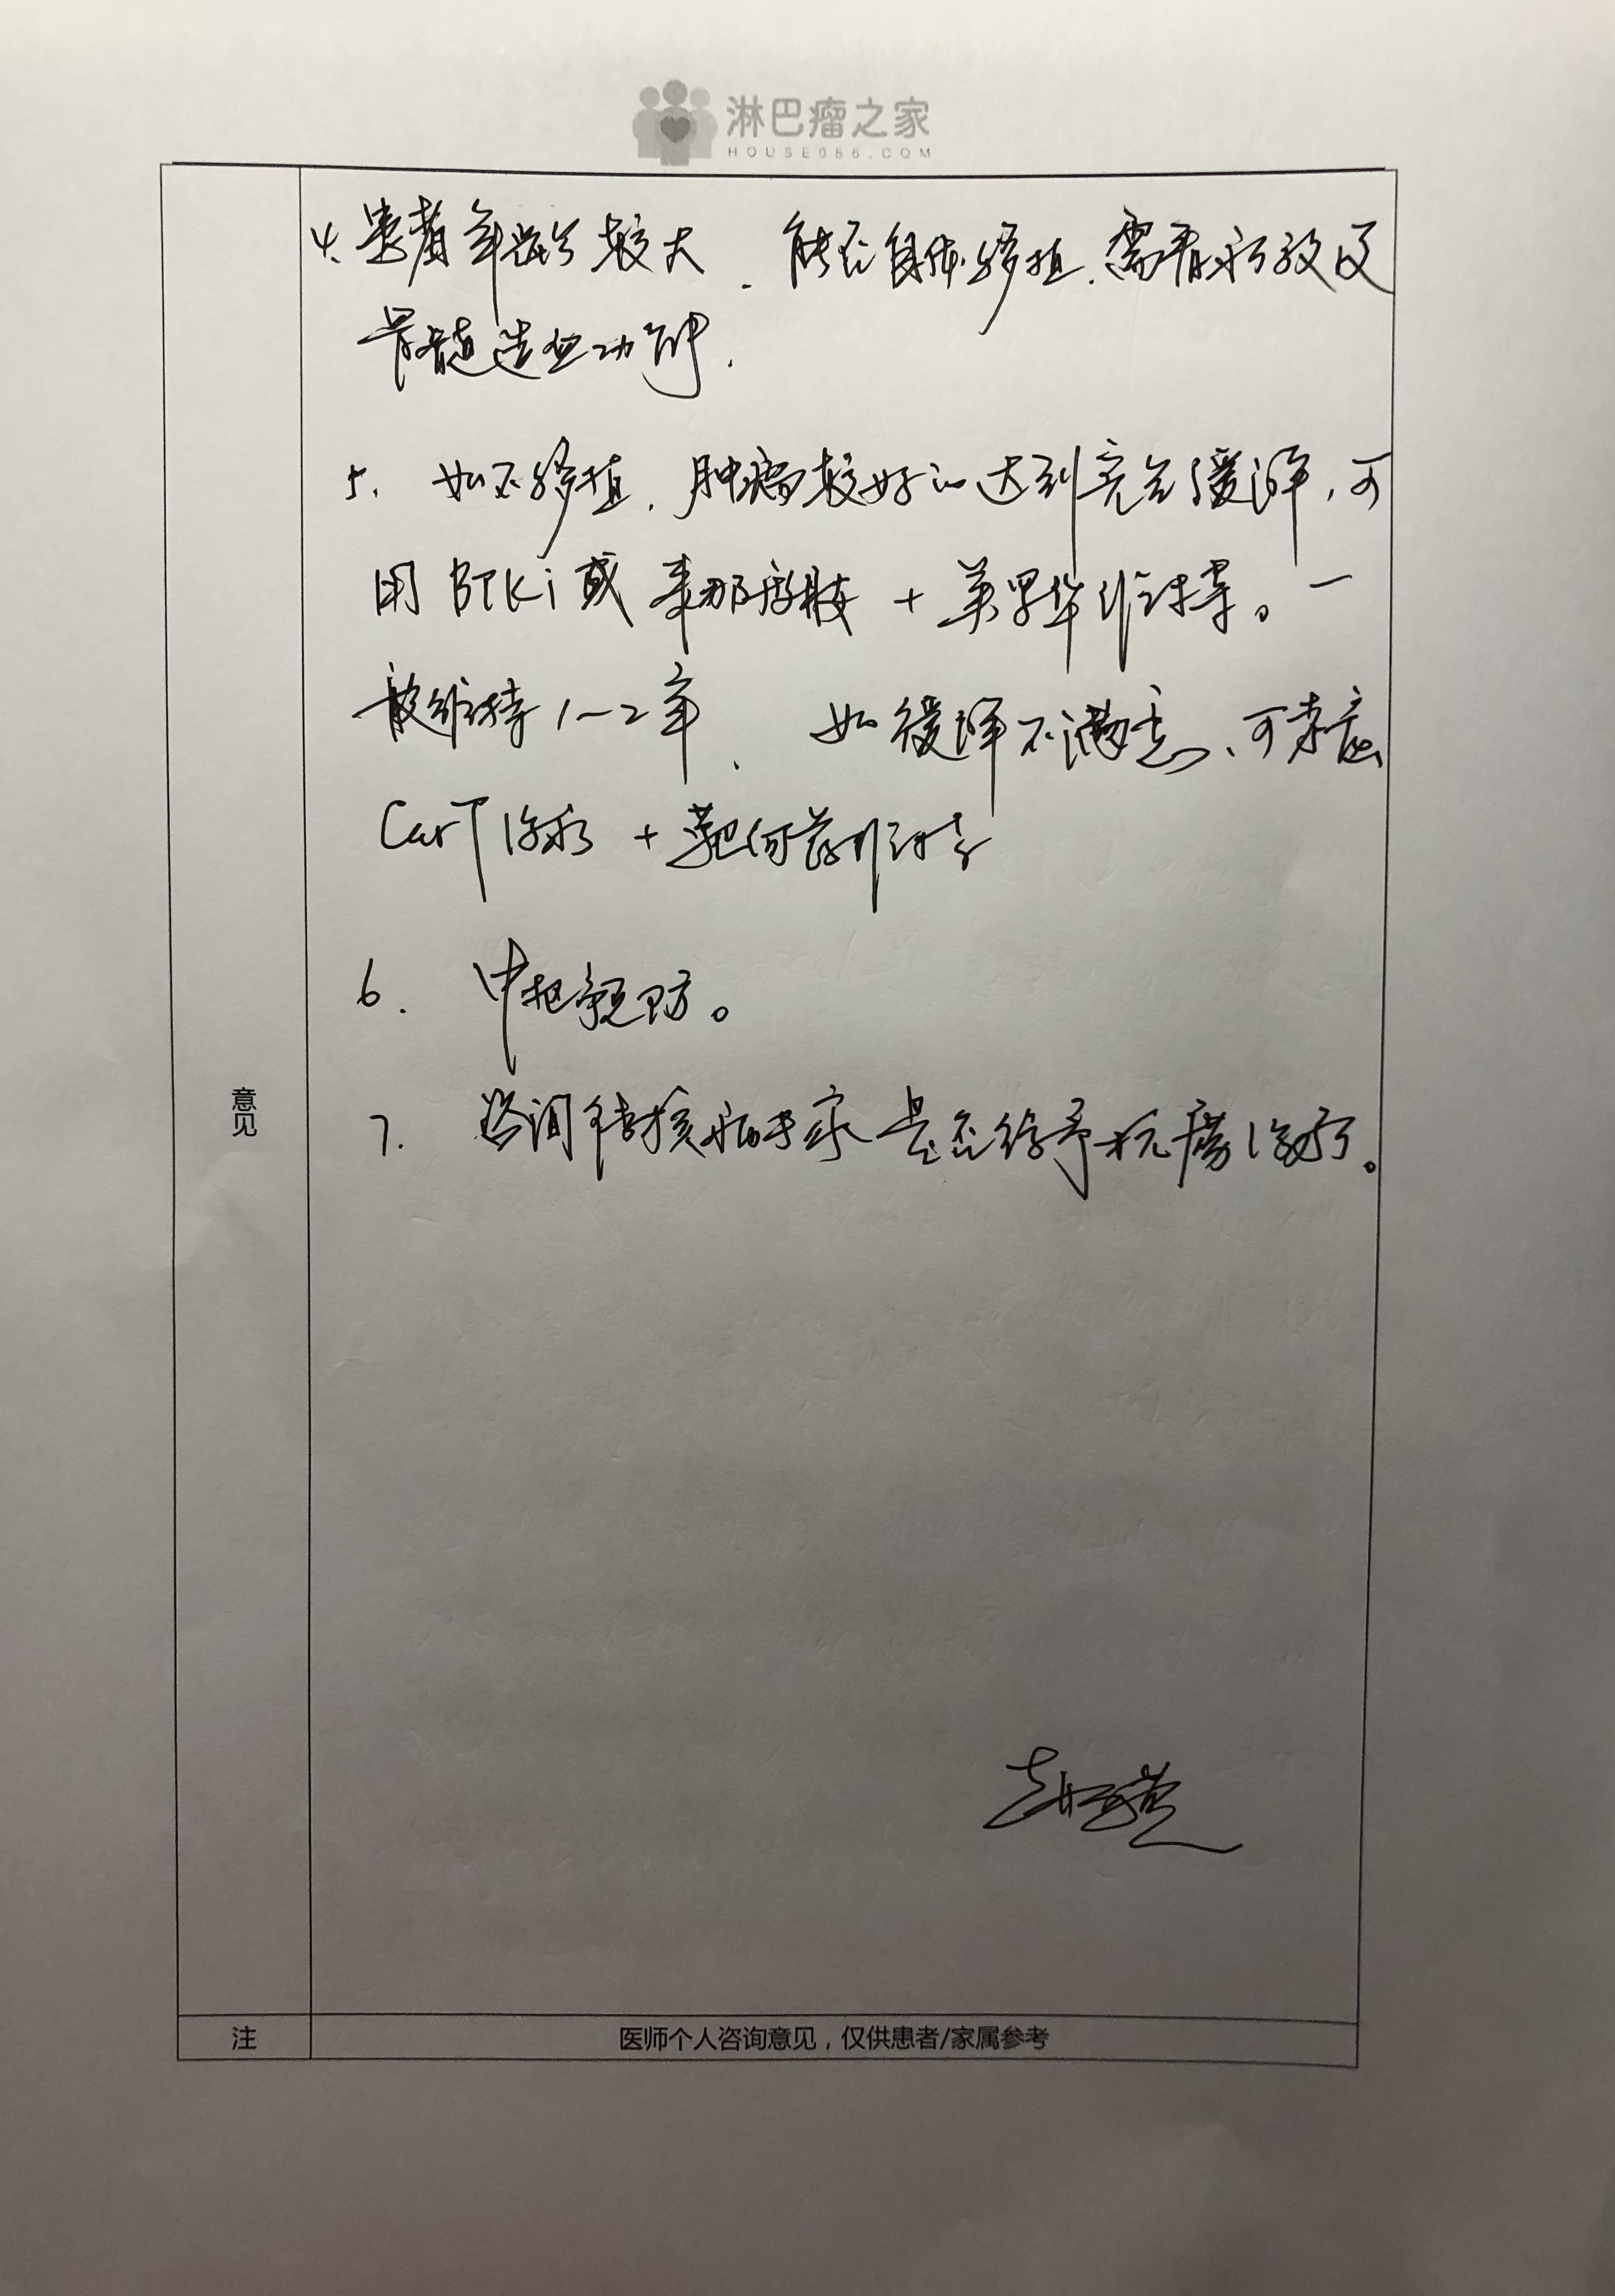 淋巴瘤之家
HOUSE086.COM
4. 患者年龄较大,能否自体移植,需看疗效及
骨髓造血功能.
5. 如不移植,肿瘤较好的达到完全缓解,可
用BTKi或来那度胺+美罗华维持。一
般维持1~2年, 如缓解不满意、可考虑
CarT治疗+靶向药维持
6. 中枢预防。
意见
7. 咨询结核病专家是否给予抗痨治疗。
注
医师个人咨询意见,仅供患者/家属参考